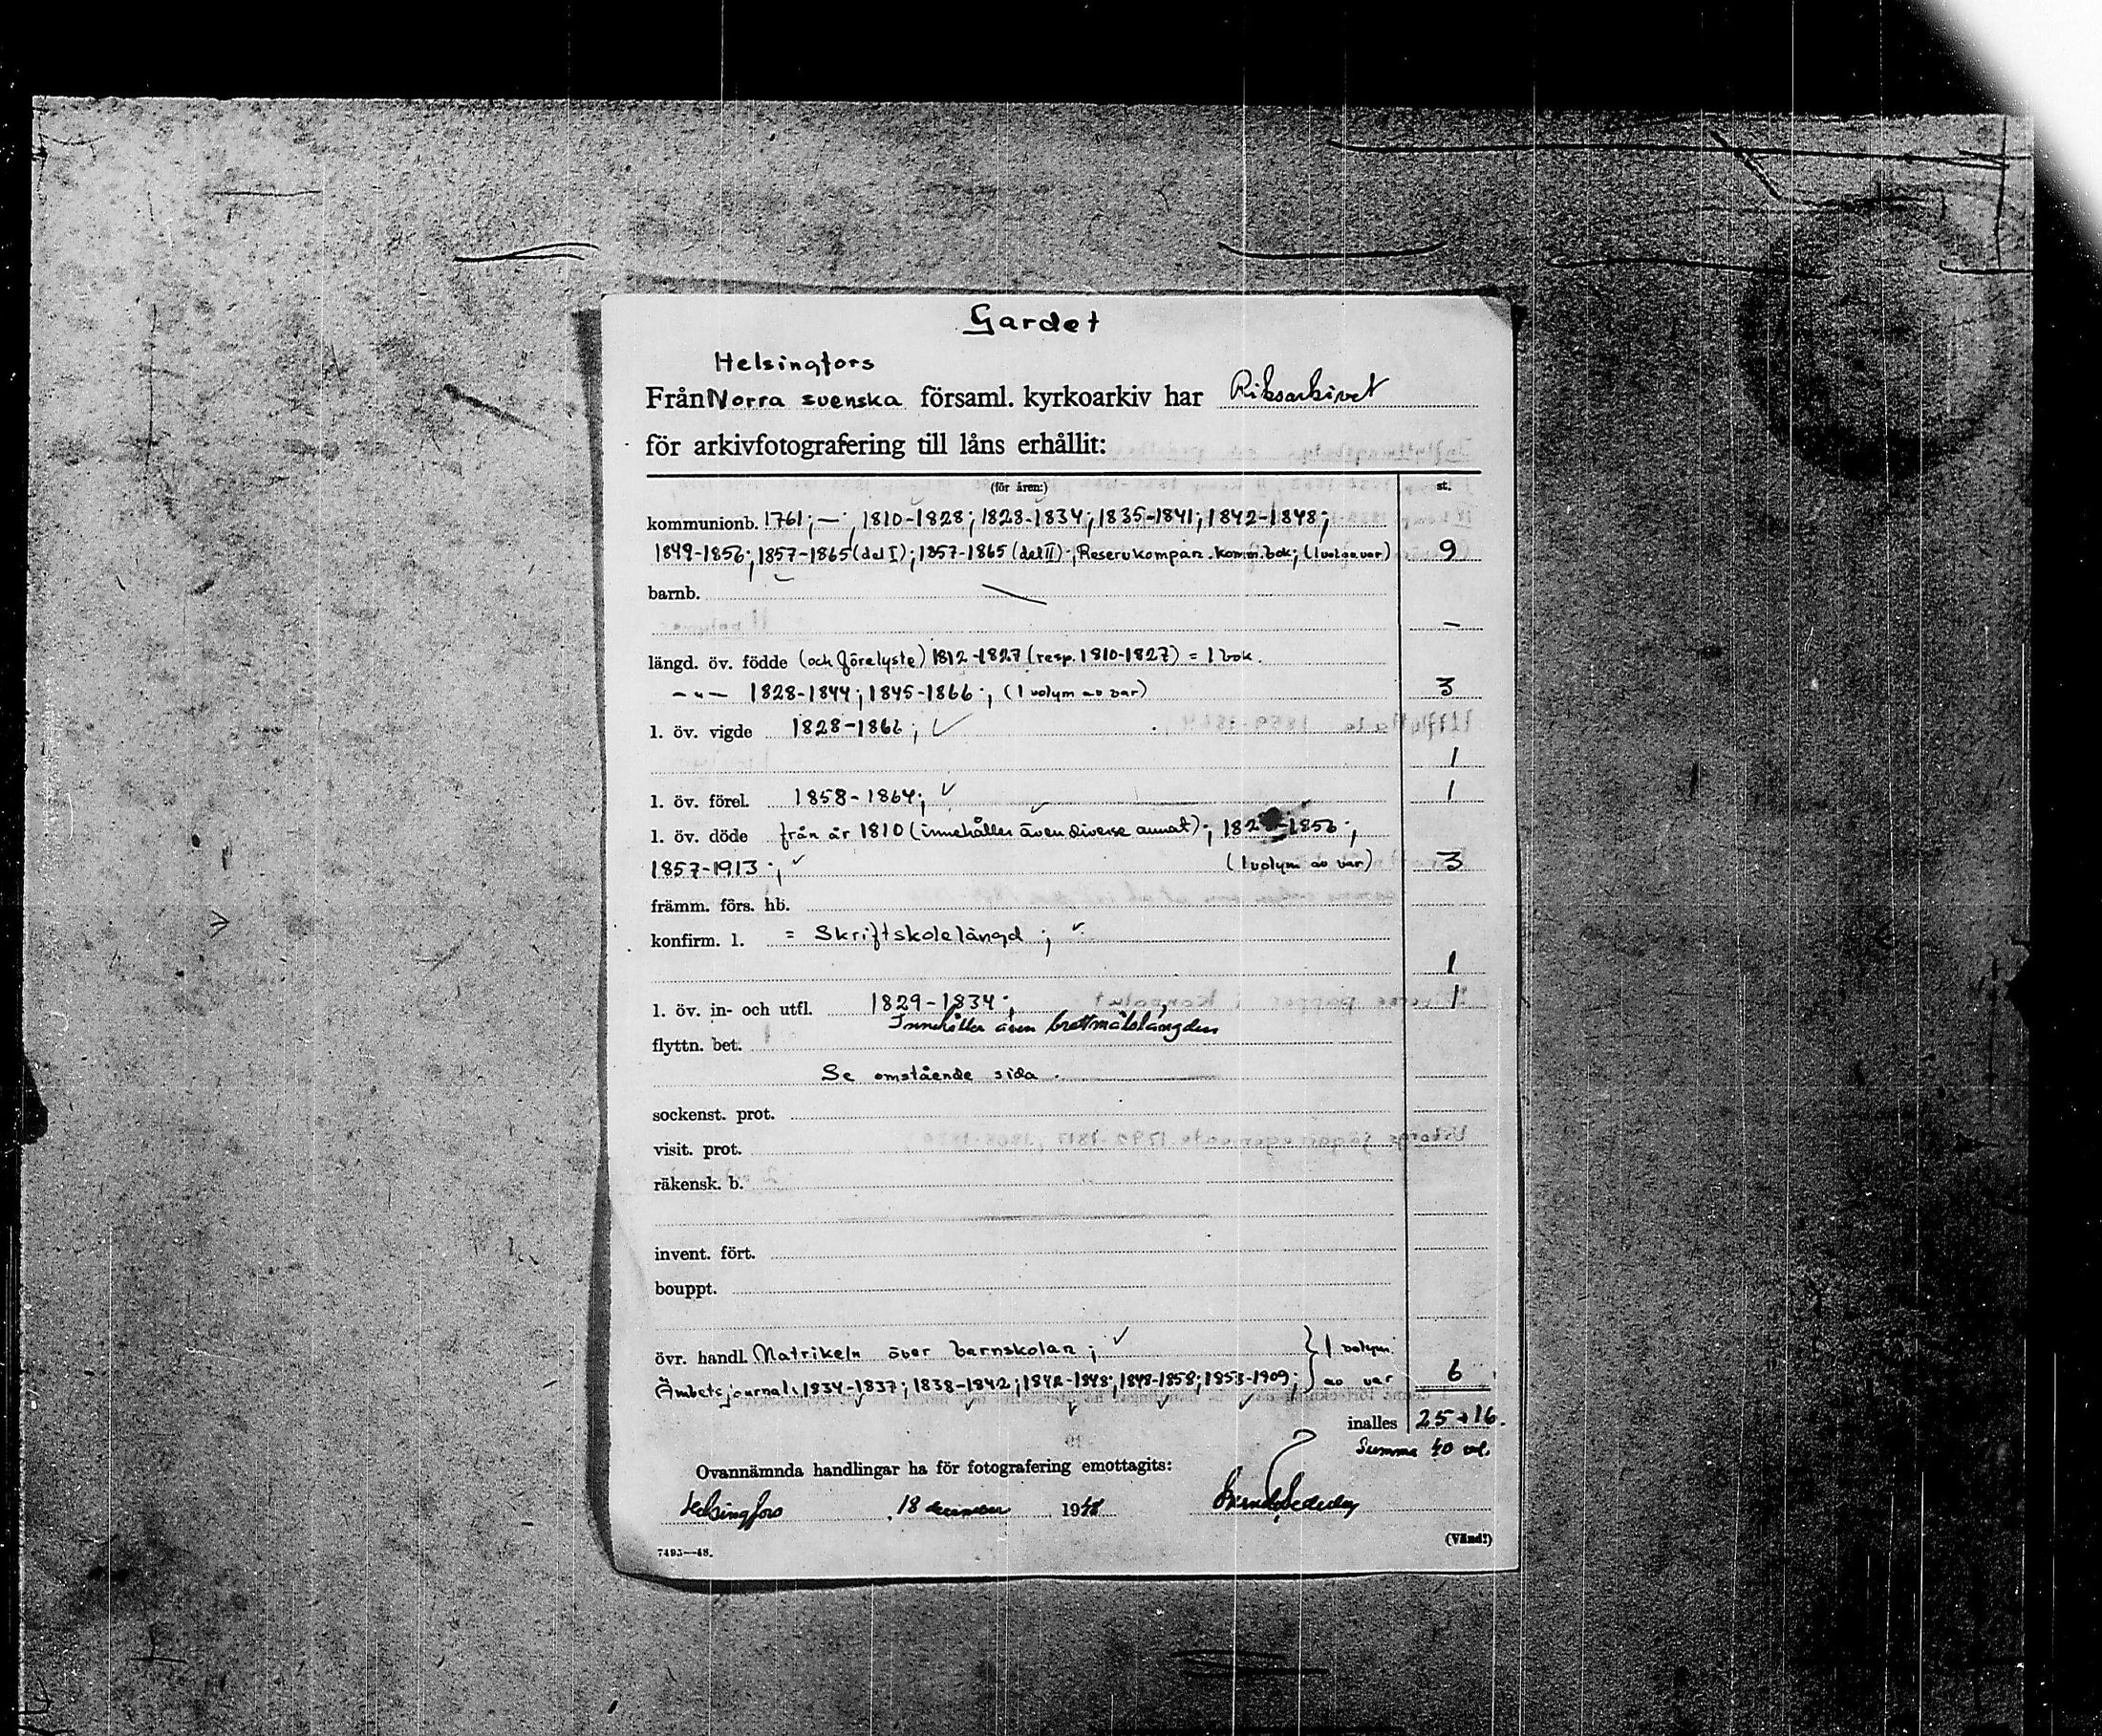 Gardet
Helsingfors
Från Norra svenska församl. kyrkoarkiv har Riksarkivet
för arkivfotografering till låns erhållit:
(för åren:) st.
kommunionb. 1761; — ; 1810-1828; 1828-1834; 1835-1841; 1842-1848;
1849-1856; 1857-1865 (del I); 1857-1865 (del II); Reservkompan. komm.bok; (1 vol av var) 9
barnb.
—
längd. öv. födde (och förelyste) 1812-1827 (resp. 1810-1827) = 1 bok.
—"— 1828-1844; 1845-1866; (1 volym av var) 3
l. öv. vigde 1828-1866;
1
l. öv. förel. 1858-1864; 1
l. öv. döde från år 1810 (innehåller även diverse annat); -1856;
1857-1913; (1 volym av var) 3
främm. förs. hb.
konfirm. l. = Skriftskolelängd;
1
l. öv. in- och utfl. 1829-1834; 1
Innehåller även brottmålslängden
flyttn. bet.
Se omstående sida.
sockenst. prot.
visit. prot.
räkensk. b.
invent. fört.
bouppt.
övr. handl. Matrikeln över barnskolan; } 1 volym
Ämbetsjournal: 1834-1837; 1838-1842; 1842-1848; 1848-1858; 1858-1909; } av var 6
inalles 25+16.
Summa 40 vol.
Ovannämnda handlingar ha för fotografering emottagits:
Helsingfors, 18 december 1948
(Vänd!)
7493—48.